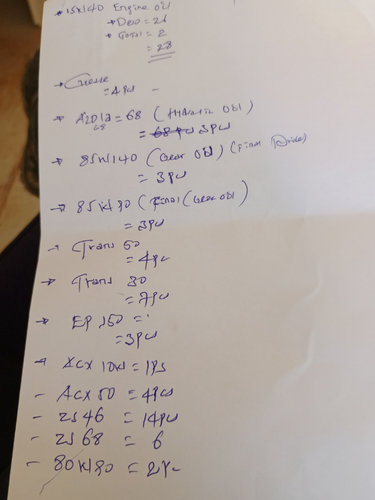 * 15W40 Engine oil
* Deo = 26
* Total = 2
= 28
→ Grease
= 4pcs -
→ Azolla = 68 (Hydraulic Oil)
68
= 3pcs
→ 85W140 (Gear Oil) (Final Drive)
= 3pcs
→ 85W90 (Final (Gear Oil)
= 3pcs
→ Trans 50
= 4pc
→ Trans 30
= 7pcs
→ EP 150 =
= 3pcs
→ Acx 10W = 1ps
- Acx 50 = 4pcs
- ZS 46 = 14pcs
- ZS 68 = 6
- 80W90 = 2pc